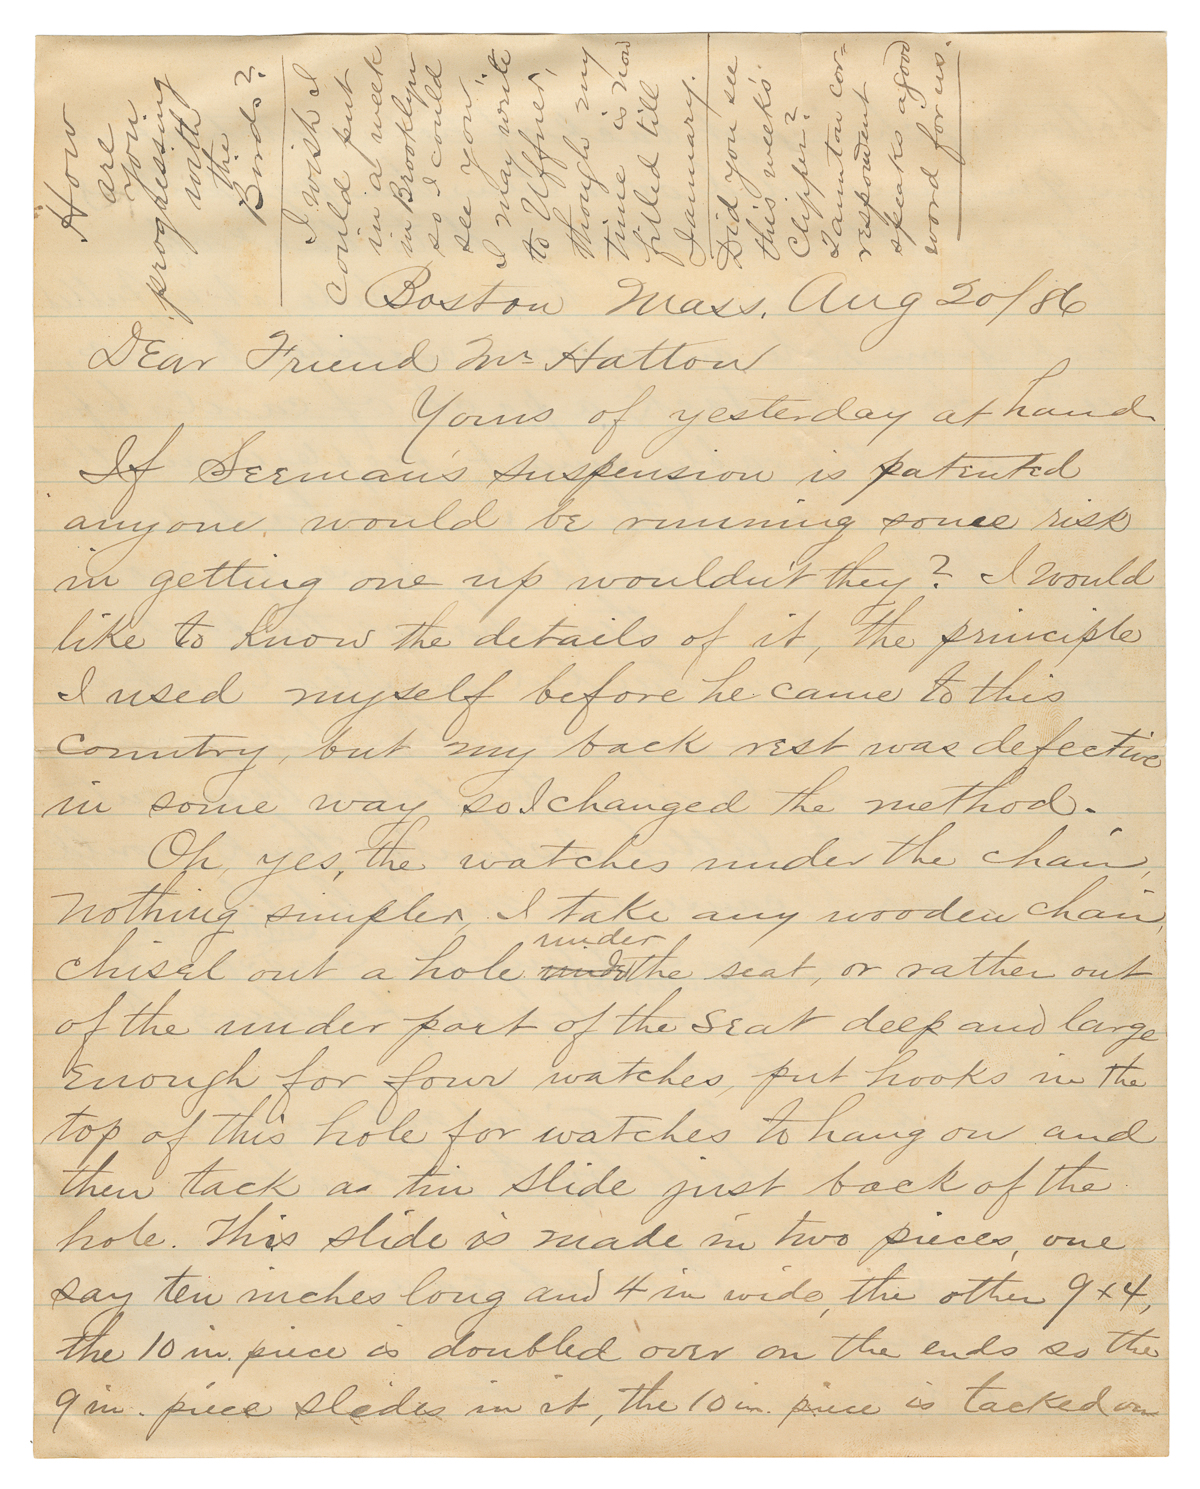 How
are
you
progressing
with
the
Birds?
I wish I
could put
in a week
in Brooklyn
so I could
see you.
I may write
to Uffner,
though my
time is now
filled till
January.
Did you see
this week's
Clipper?
Taunton cor-
respondent
speaks a good
word for us.
Boston Mass. Aug 20/86
Dear Friend Mr Hatton
Yours of yesterday at hand
If Seeman's suspension is patented
anyone would be running some risk
in getting one up wouldn't they? I would
like to know the details of it, the principle
I used myself before he came to this
country, but my back rest was defective
in some way so I changed the method.
Oh, yes, the watches under the chair,
nothing simpler, I take any wooden chair,
chisel out a hole under the seat, or rather out
of the under part of the seat deep and large
enough for four watches, put hooks in the
top of this hole for watches to hang on and
then tack a tin slide just back of the
hole. This slide is made in two pieces, one
say ten inches long and 4 in wide, the other 9x4,
the 10 in. piece is doubled over on the ends so the
9 in. piece slides in it, the 10 in. piece is tacked on